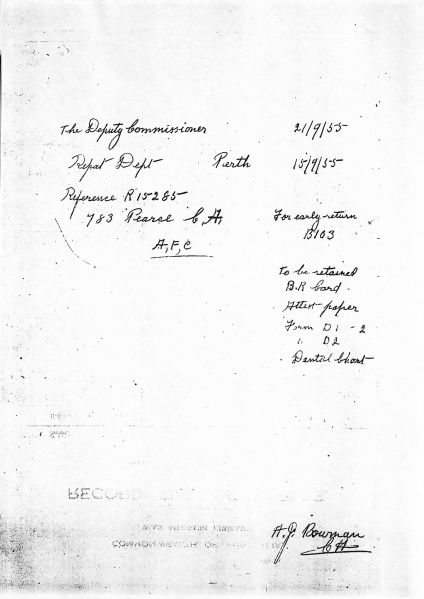 The Deputy Commissioner 21/9/55
Repat Dept Perth 15/9/55
Reference R 15285
783 Pearse C, A, For early return
A, F, C B103
To be retained
B.R Card.
Attest paper
Form D1 - 2
" D2
Dental Chart
A.J. Bowman